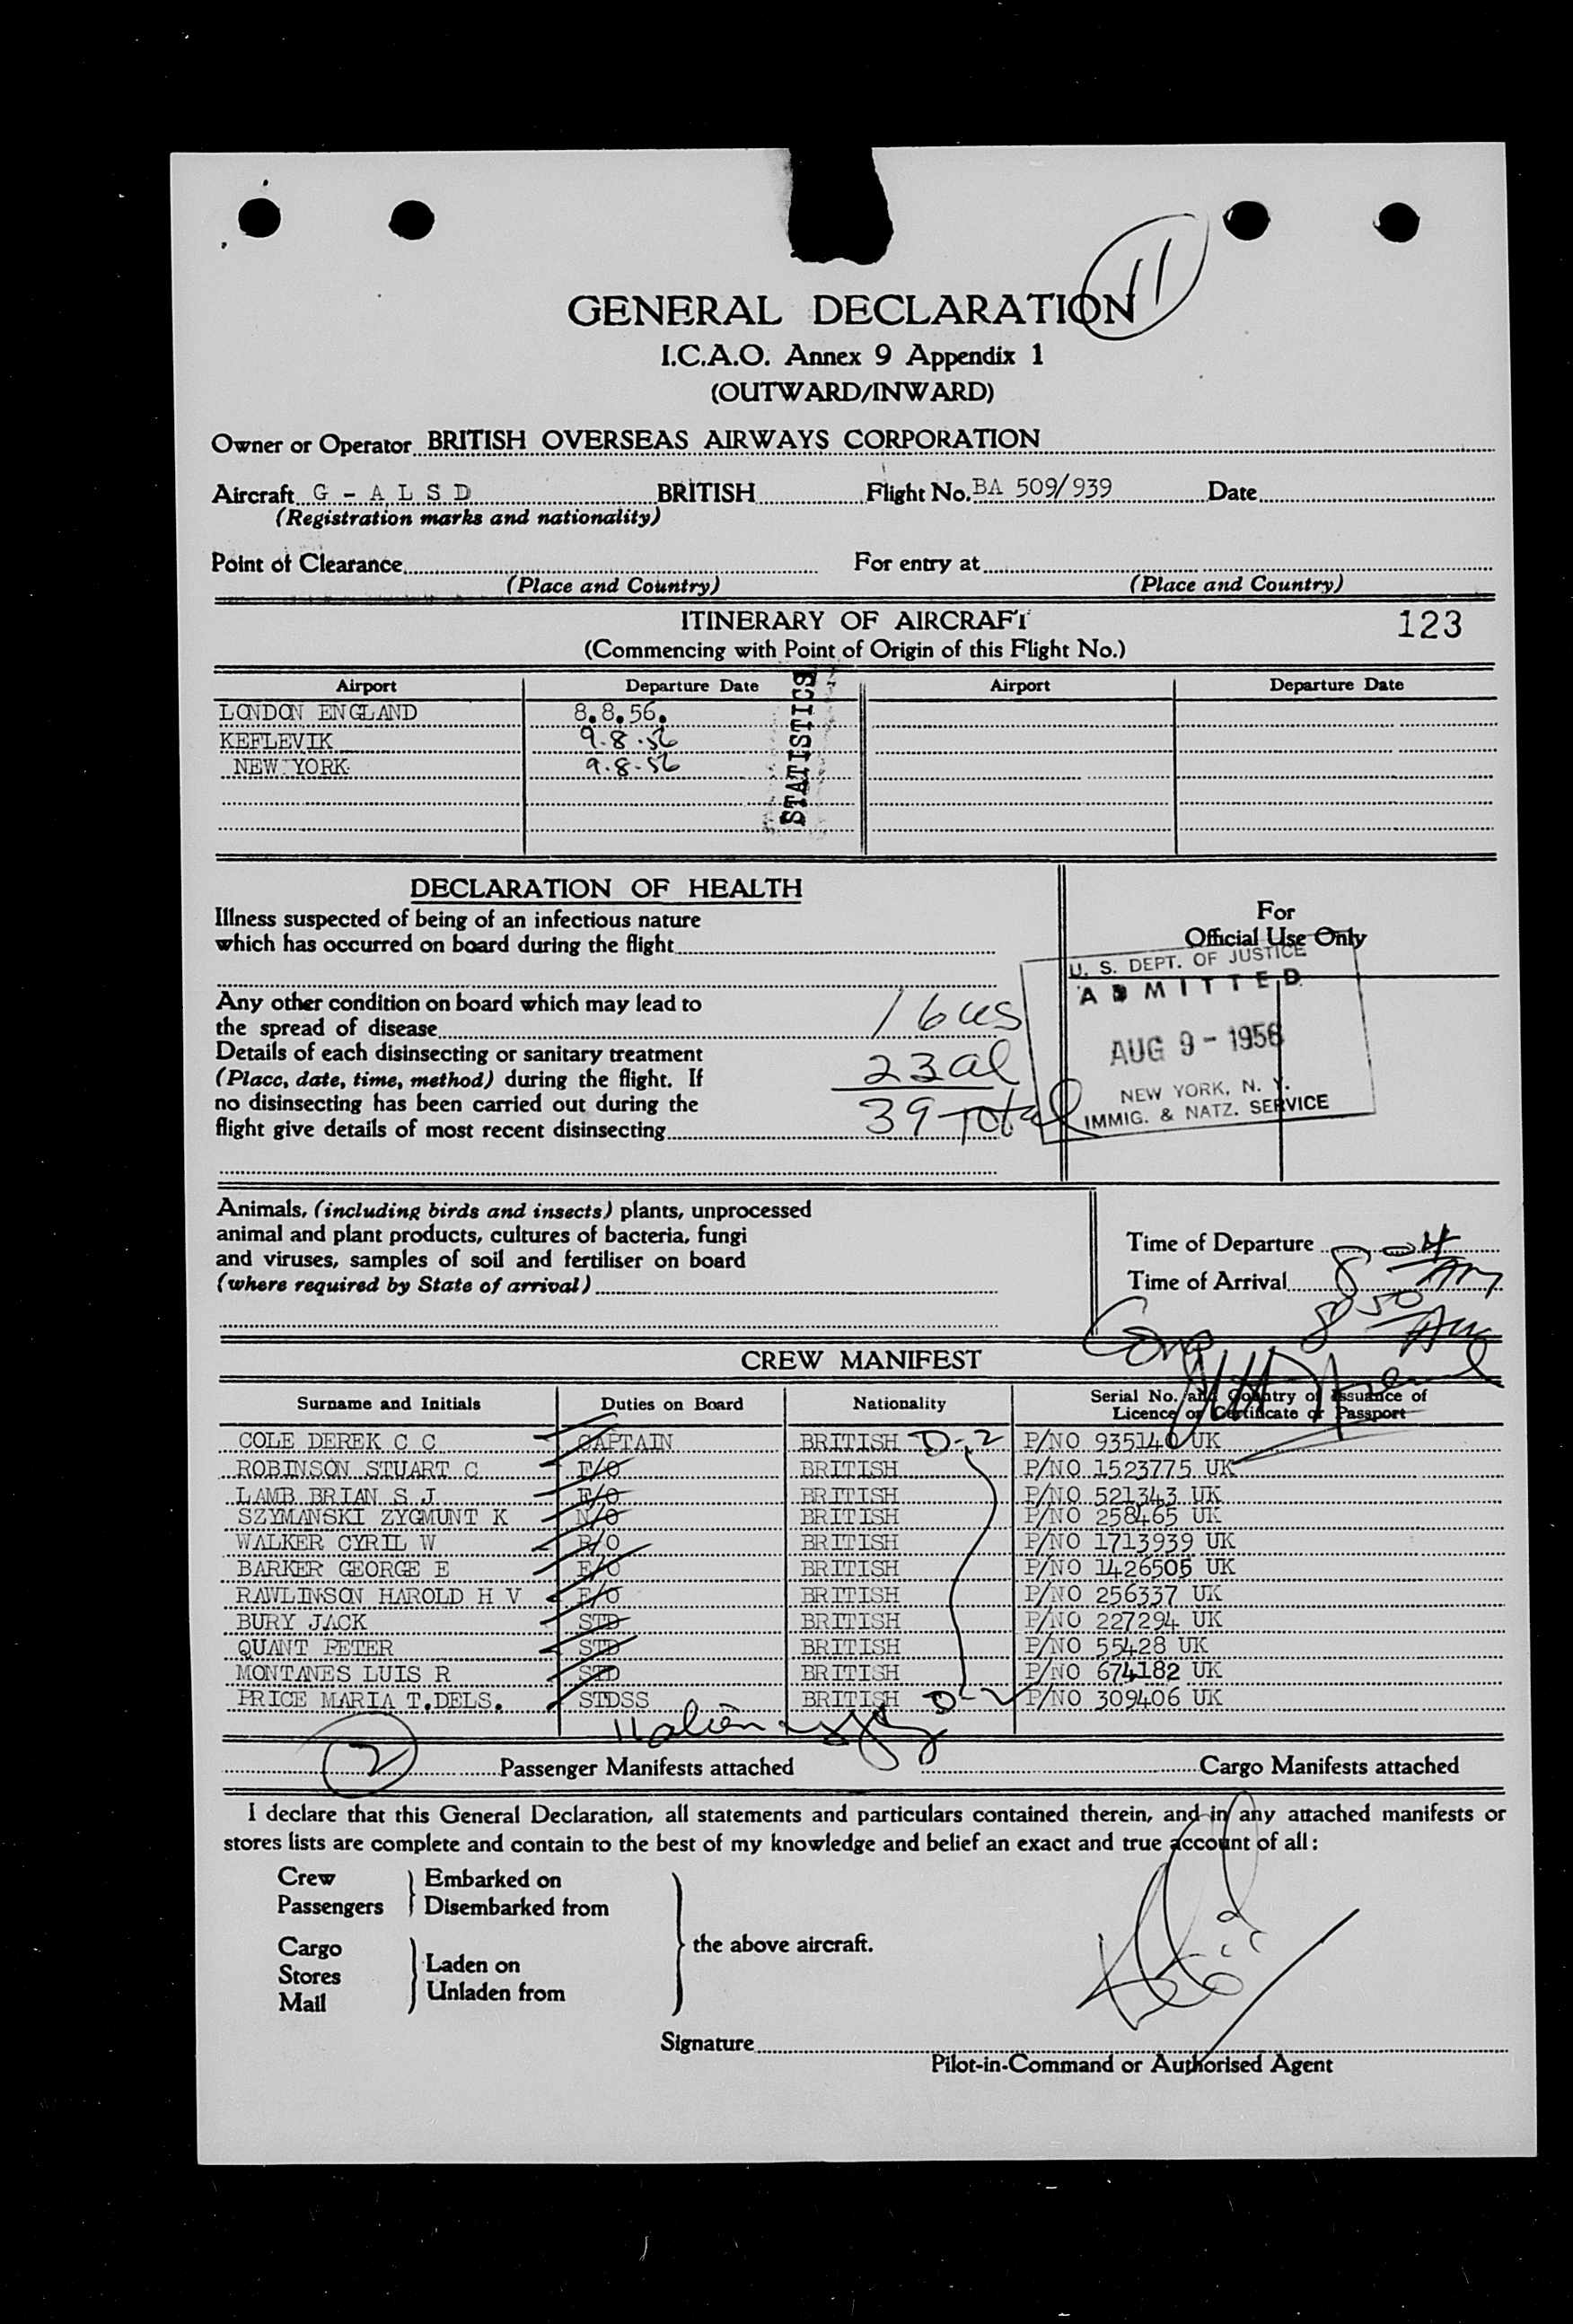 11
GENERAL DECLARATION
I.C.A.O. Annex 9 Appendix 1
(OUTWARD/INWARD)
Owner or Operator BRITISH OVERSEAS AIRWAYS CORPORATION
Aircraft G - A L S D BRITISH Flight No. BA 509/939 Date
(Registration marks and nationality)
Point of Clearance For entry at
(Place and Country) (Place and Country)
ITINERARY OF AIRCRAFT 123
(Commencing with Point of Origin of this Flight No.)
Airport Departure Date Airport Departure Date
LONDON ENGLAND 8.8.56.
KEFLEVIK 9.8.56
NEW YORK 9.8.56
STATISTICS
DECLARATION OF HEALTH
Illness suspected of being of an infectious nature
which has occurred on board during the flight
For
Official Use Only
U. S. DEPT. OF JUSTICE
ADMITTED
AUG 9 - 1956
NEW YORK, N. Y.
IMMIG. & NATZ. SERVICE
Any other condition on board which may lead to
the spread of disease 16 us
Details of each disinsecting or sanitary treatment
(Place, date, time, method) during the flight. If 23 al
no disinsecting has been carried out during the
flight give details of most recent disinsecting 39 Total
Animals, (including birds and insects) plants, unprocessed
animal and plant products, cultures of bacteria, fungi
and viruses, samples of soil and fertiliser on board
(where required by State of arrival)
Time of Departure 8 04 AM
Time of Arrival 8 50 AM
CREW MANIFEST
Surname and Initials Duties on Board Nationality Serial No. and Country of Issuance of
Licence or Certificate or Passport
COLE DEREK C C CAPTAIN BRITISH D-2 P/NO 935140 UK
ROBINSON STUART C F/O BRITISH P/NO 1523775 UK
LAMB BRIAN S J F/O BRITISH P/NO 521343 UK
SZYMANSKI ZYGMUNT K N/O BRITISH P/NO 258465 UK
WALKER CYRIL W R/O BRITISH P/NO 1713939 UK
BARKER GEORGE E E/O BRITISH P/NO 1426505 UK
RAWLINSON HAROLD H V E/O BRITISH P/NO 256337 UK
BURY JACK STD BRITISH P/NO 227294 UK
QUANT PETER STD BRITISH P/NO 55428 UK
MONTANES LUIS R STD BRITISH P/NO 674182 UK
PRICE MARIA T.DELS. STDSS BRITISH D-2 P/NO 309406 UK
2 Passenger Manifests attached Cargo Manifests attached
I declare that this General Declaration, all statements and particulars contained therein, and in any attached manifests or
stores lists are complete and contain to the best of my knowledge and belief an exact and true account of all:
Crew Embarked on
Passengers Disembarked from
the above aircraft.
Cargo
Stores Laden on
Mail Unladen from
Signature
Pilot-in-Command or Authorised Agent